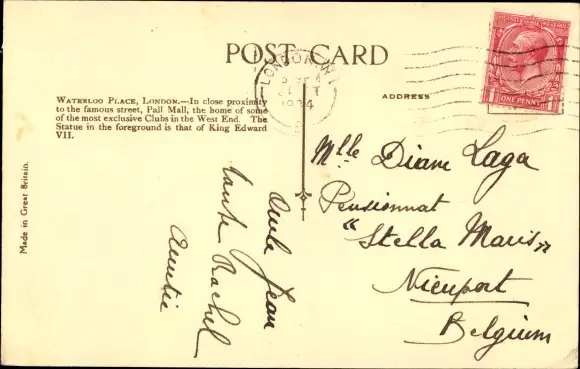 POST CARD
WATERLOO PLACE, LONDON.—In close proximity
to the famous street, Pall Mall, the home of some
of the most exclusive Clubs in the West End. The
Statue in the foreground is that of King Edward
VII.
Made in Great Britain.
ADDRESS
LONDON. W.1
1934
ONE PENNY
Mlle Diane Laga
Pensionnat
"Stella Maris"
Nieuport
Belgium
Jean
tante Rachel
Auntie